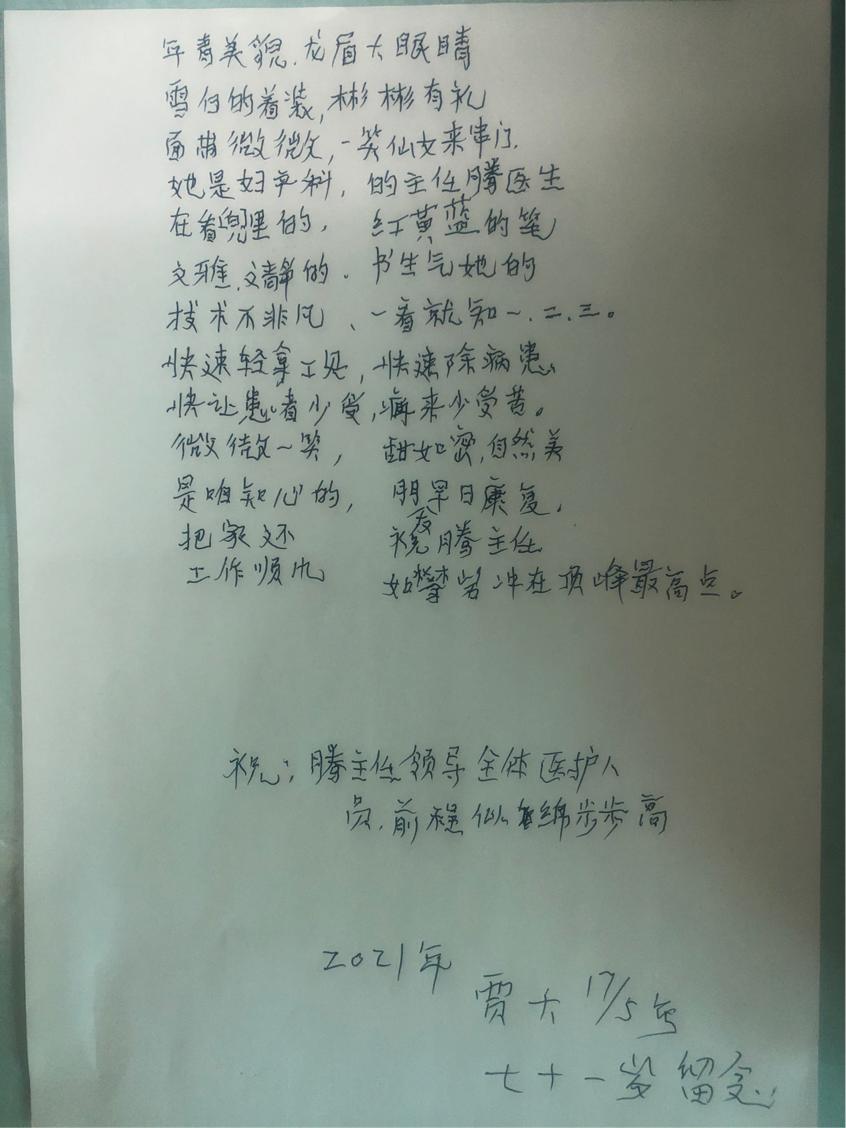 年青美貌.龙眉大眼睛
雪白的着装,彬彬有礼
面带微微,一笑仙女来串门.
她是妇科,的主任腾医生
在看兜里的,红黄蓝的笔
文雅.文静的、书生气她的
技术不非凡、一看就知一.二.三。
快速轻拿工具,快速除病患
快让患者少受,病来少受苦。
微微一笑,甜如密,自然美
是咱知心的,朋早日康复,
友
把家还 祝腾主任
工作顺 如攀岩冲在顶峰最高点。
祝:腾主任领导全体医护人
员.前程似锦步步高
2021年
贾大 17/5号
七十一岁留念